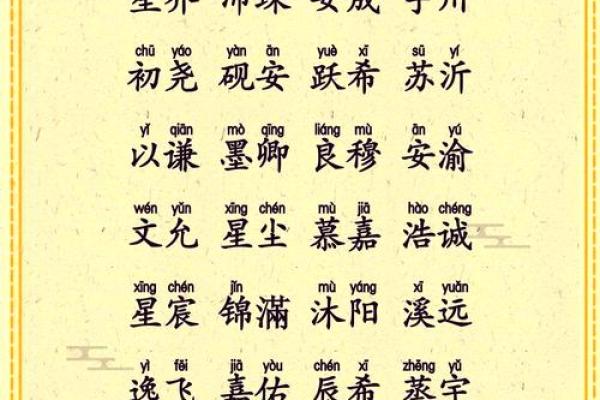 chū yáo yàn ān yuè xī sū yí
初尧 砚安 跃希 苏沂
yǐ qiān mò qīng liáng mù ān yú
以谦 墨卿 良穆 安渝
wén yǔn xīng chén mù jiā hào chéng
文允 星尘 慕嘉 浩诚
xīng chén jǐn mù yáng xī yuǎn
星宸 锦滿 沐阳 溪远
yì fēi jiā yòu chén xī zhēng yǔ
逸飞 嘉佑 辰希 蒸宇